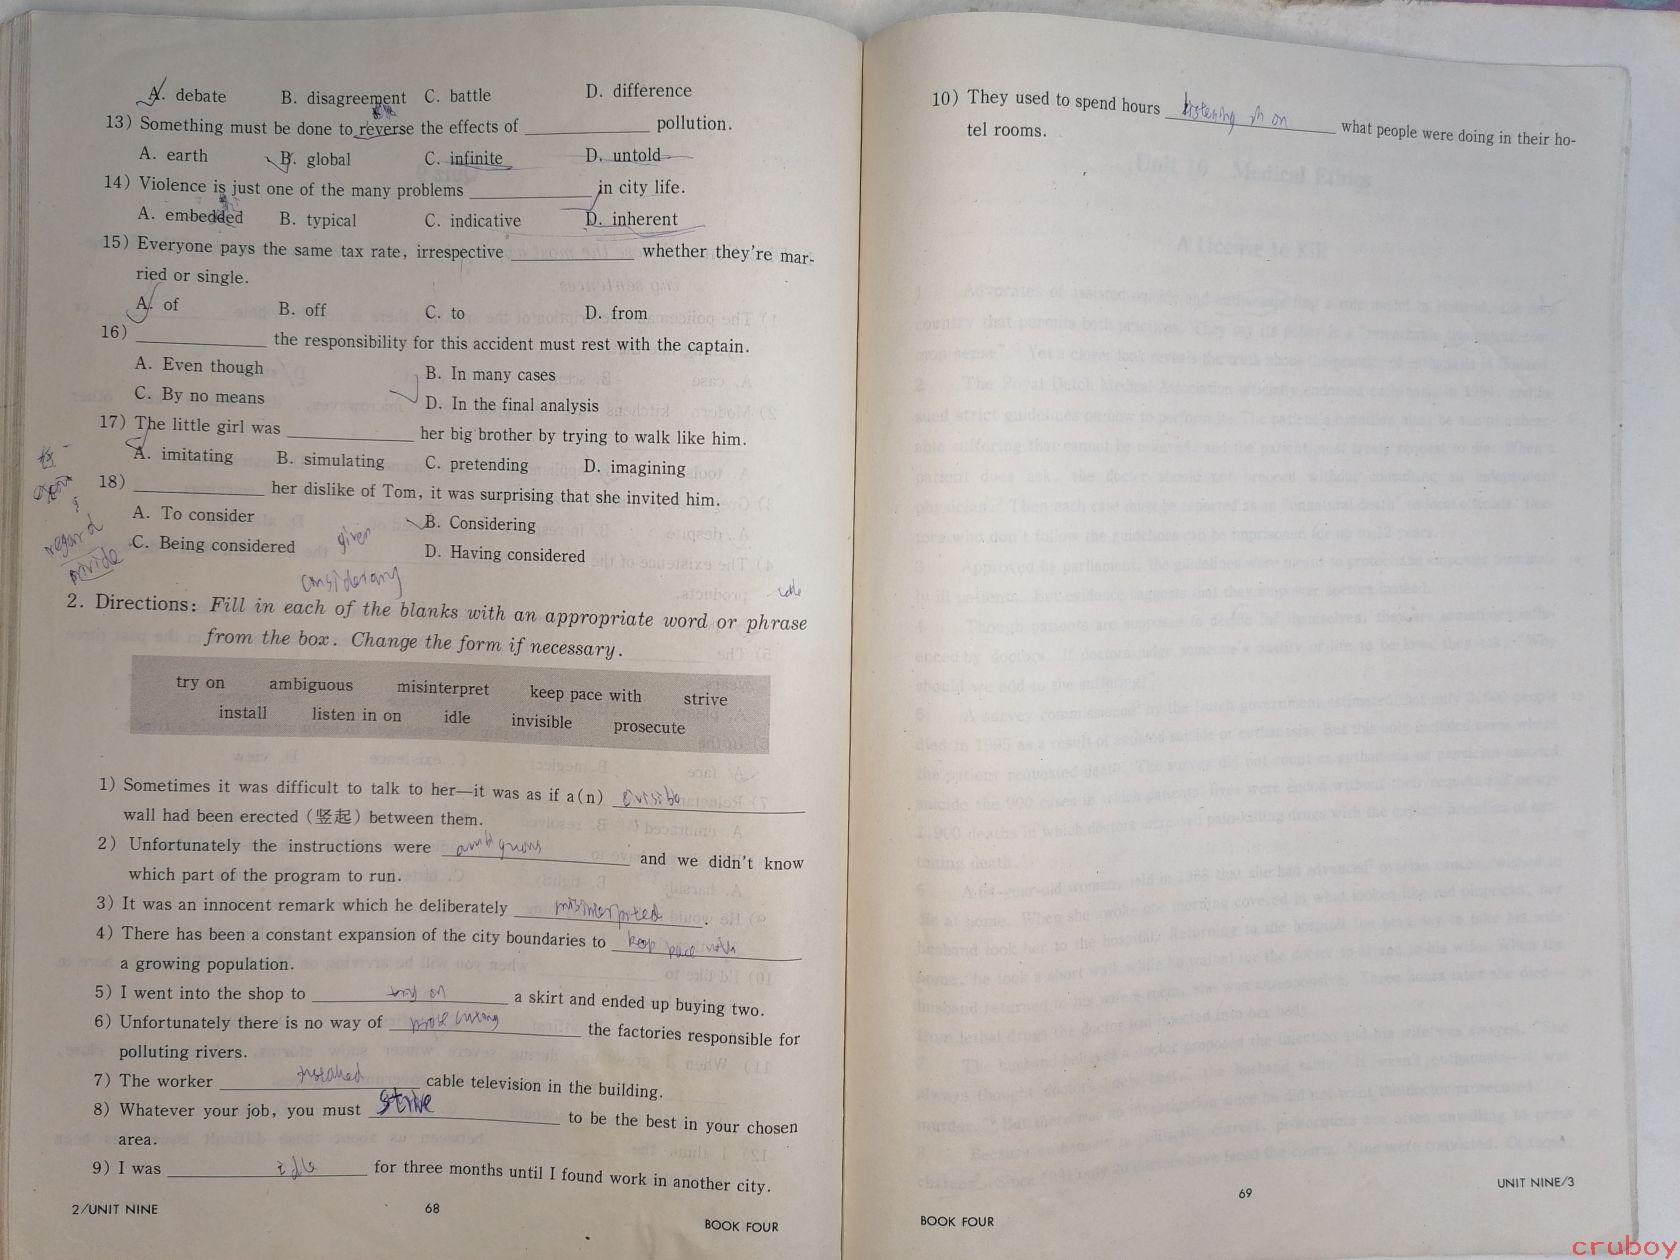 A. debate B. disagreement C. battle D. difference
13) Something must be done to reverse the effects of ____________ pollution.
A. earth B. global C. infinite D. untold
14) Violence is just one of the many problems ____________ in city life.
A. embedded B. typical C. indicative D. inherent
15) Everyone pays the same tax rate, irrespective ____________ whether they're mar-
ried or single.
A. of B. off C. to D. from
16) ____________ the responsibility for this accident must rest with the captain.
A. Even though B. In many cases
C. By no means D. In the final analysis
17) The little girl was ____________ her big brother by trying to walk like him.
A. imitating B. simulating C. pretending D. imagining
18) ____________ her dislike of Tom, it was surprising that she invited him.
A. To consider B. Considering
regard
C. Being considered given D. Having considered
considerang
2. Directions: Fill in each of the blanks with an appropriate word or phrase
from the box. Change the form if necessary.
try on ambiguous misinterpret keep pace with strive
install listen in on idle invisible prosecute
1) Sometimes it was difficult to talk to her—it was as if a(n)
wall had been erected (竖起) between them.
2) Unfortunately the instructions were ambiguous and we didn't know
which part of the program to run.
3) It was an innocent remark which he deliberately ____________.
4) There has been a constant expansion of the city boundaries to keep pace with
a growing population.
5) I went into the shop to try on a skirt and ended up buying two.
6) Unfortunately there is no way of ____________ the factories responsible for
polluting rivers.
7) The worker ____________ cable television in the building.
8) Whatever your job, you must strive to be the best in your chosen
area.
9) I was idle for three months until I found work in another city.
2/UNIT NINE 68 BOOK FOUR
10) They used to spend hours listening in on what people were doing in their ho-
tel rooms.
Unit 10 Medical Ethics
A License to Kill
BOOK FOUR 69 UNIT NINE/3
cruboy